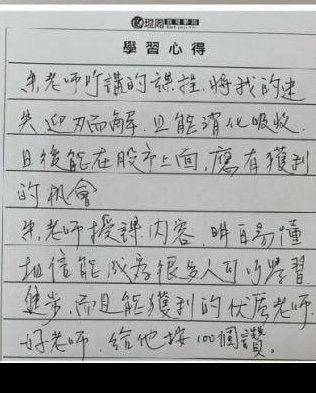 理周教育學苑
學習心得
朱老師所講的課程,將我的迷
失迎刃而解,且能消化吸收.
日後能在股市上面,應有獲利
的机會
朱老師授課內容,明白易懂
相信能成為很多人可以學習
進步,而且能獲利的优質老師.
好老師,給他按100個讚。